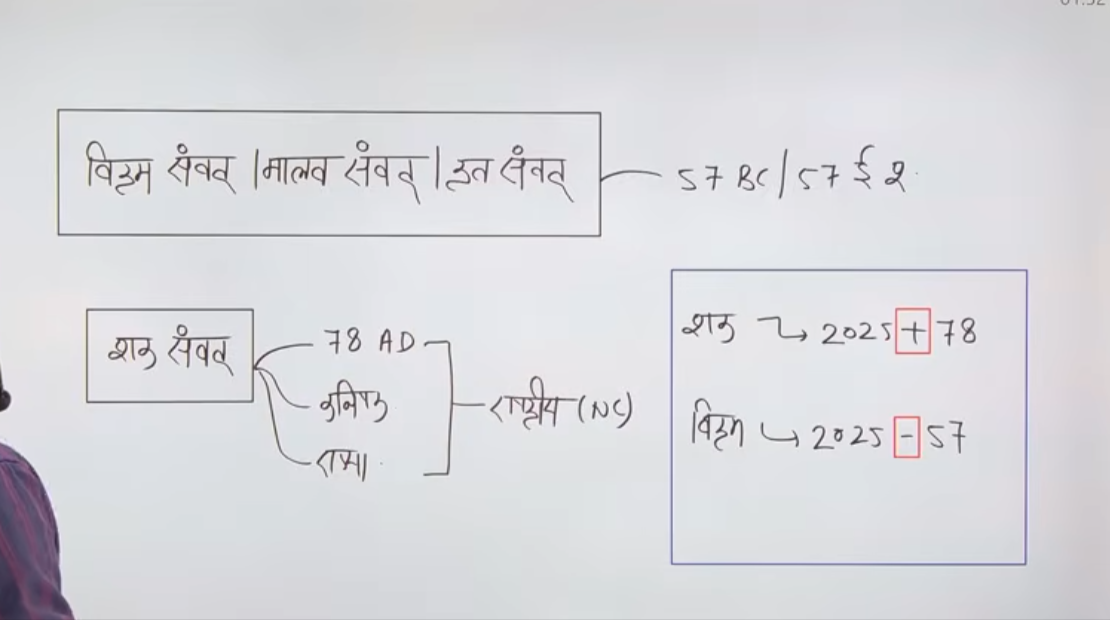 विक्रम संवत् | मालव संवत् | कृत संवत् 57 BC / 57 ई पू.
शक संवत् 78 AD
कनिष्क
राजा
राष्ट्रीय (NC)
शक → 2025 + 78
विक्रम → 2025 - 57